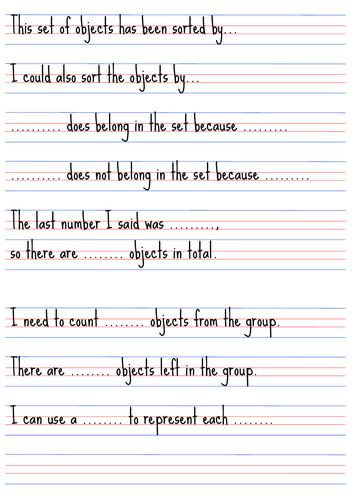 This set of objects has been sorted by...
I could also sort the objects by...
.......... does belong in the set because .........
.......... does not belong in the set because .........
The last number I said was .........,
so there are ........ objects in total.
I need to count ........ objects from the group.
There are ........ objects left in the group.
I can use a ........ to represent each ........